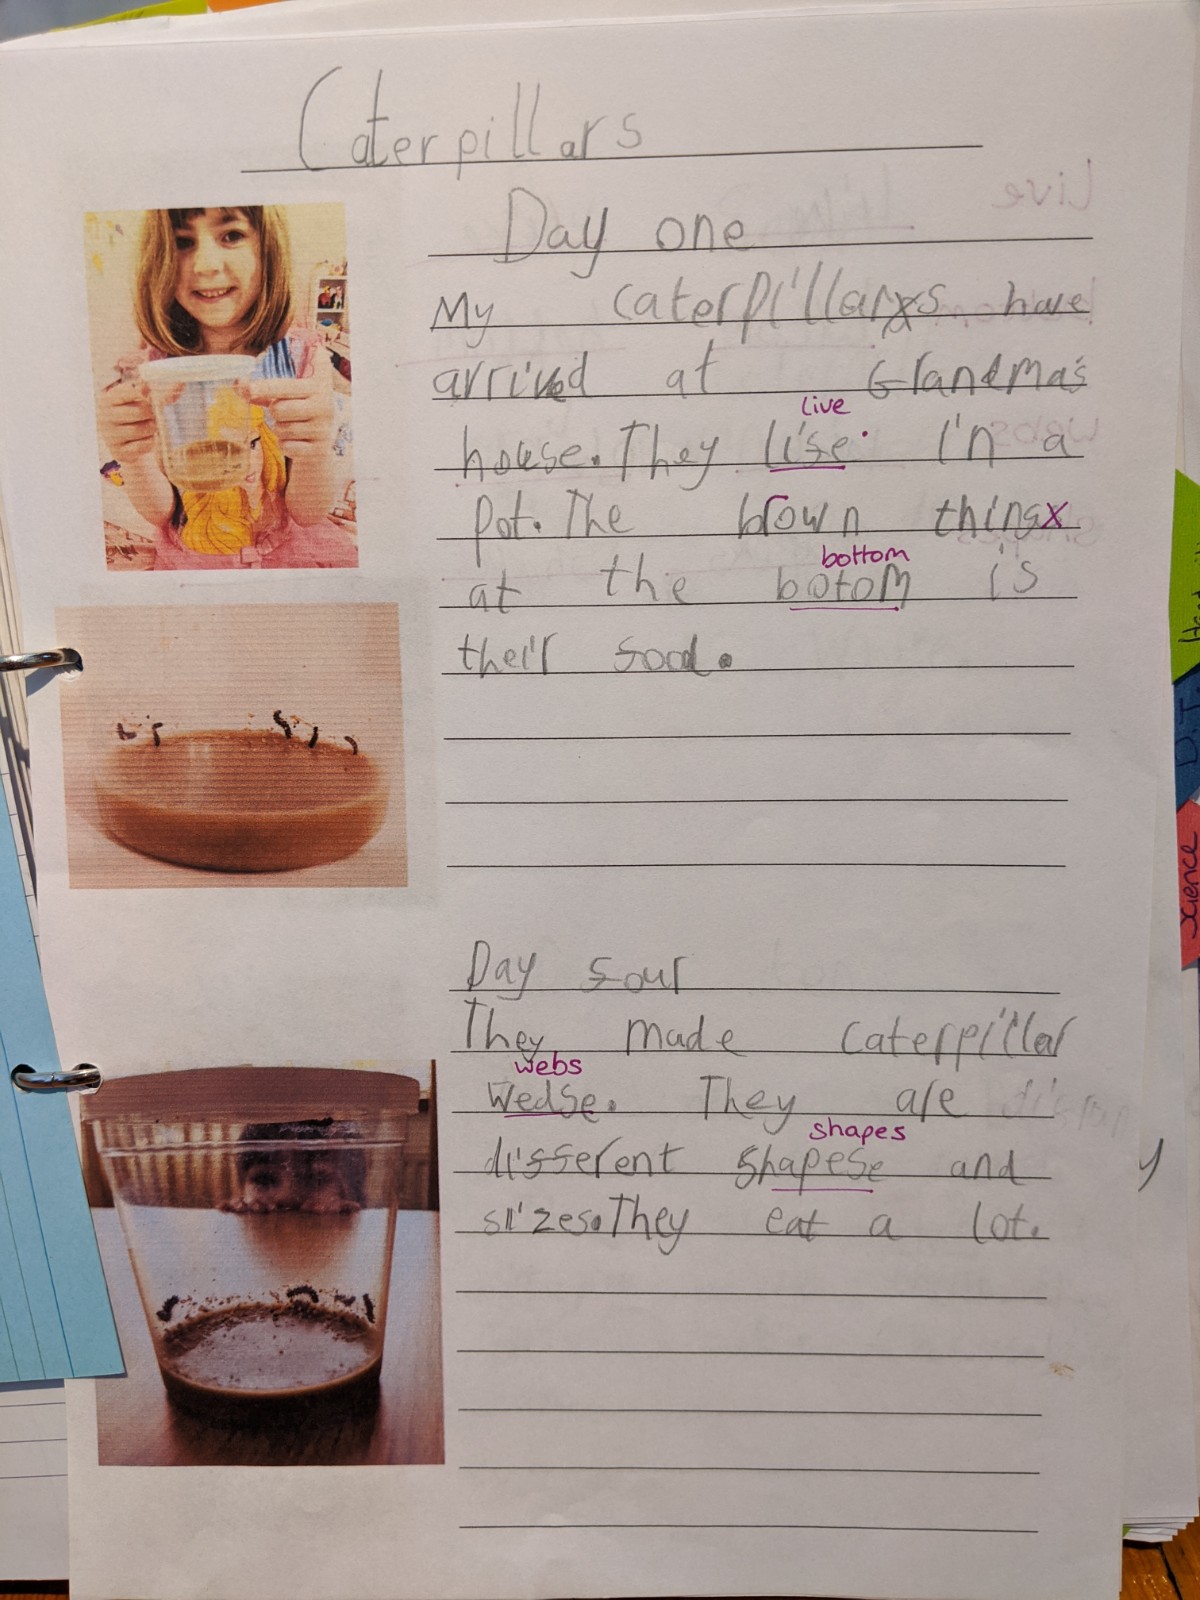 Caterpillars
Day one
My caterpillars have
arrived at Grandma's
live
house. They life in a
pot. The brown thing x
bottom
at the botom is
their food.
Day four
They made caterpillar
webs
wedse. They are
shapes
different shapese and
sizes. They eat a lot.
D.T
Science
y